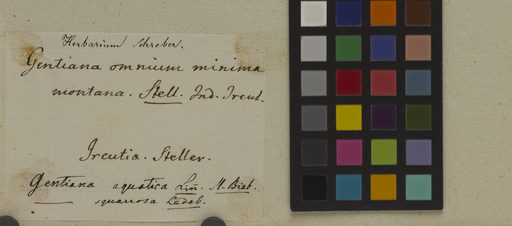 Herbarium Schreber.
Gentiana omnium minima
montana. Stell. Ind. Ircut.
Ircutia. Steller.
Gentiana aquatica Lin. M. Bieb.
squarrosa Ledeb.